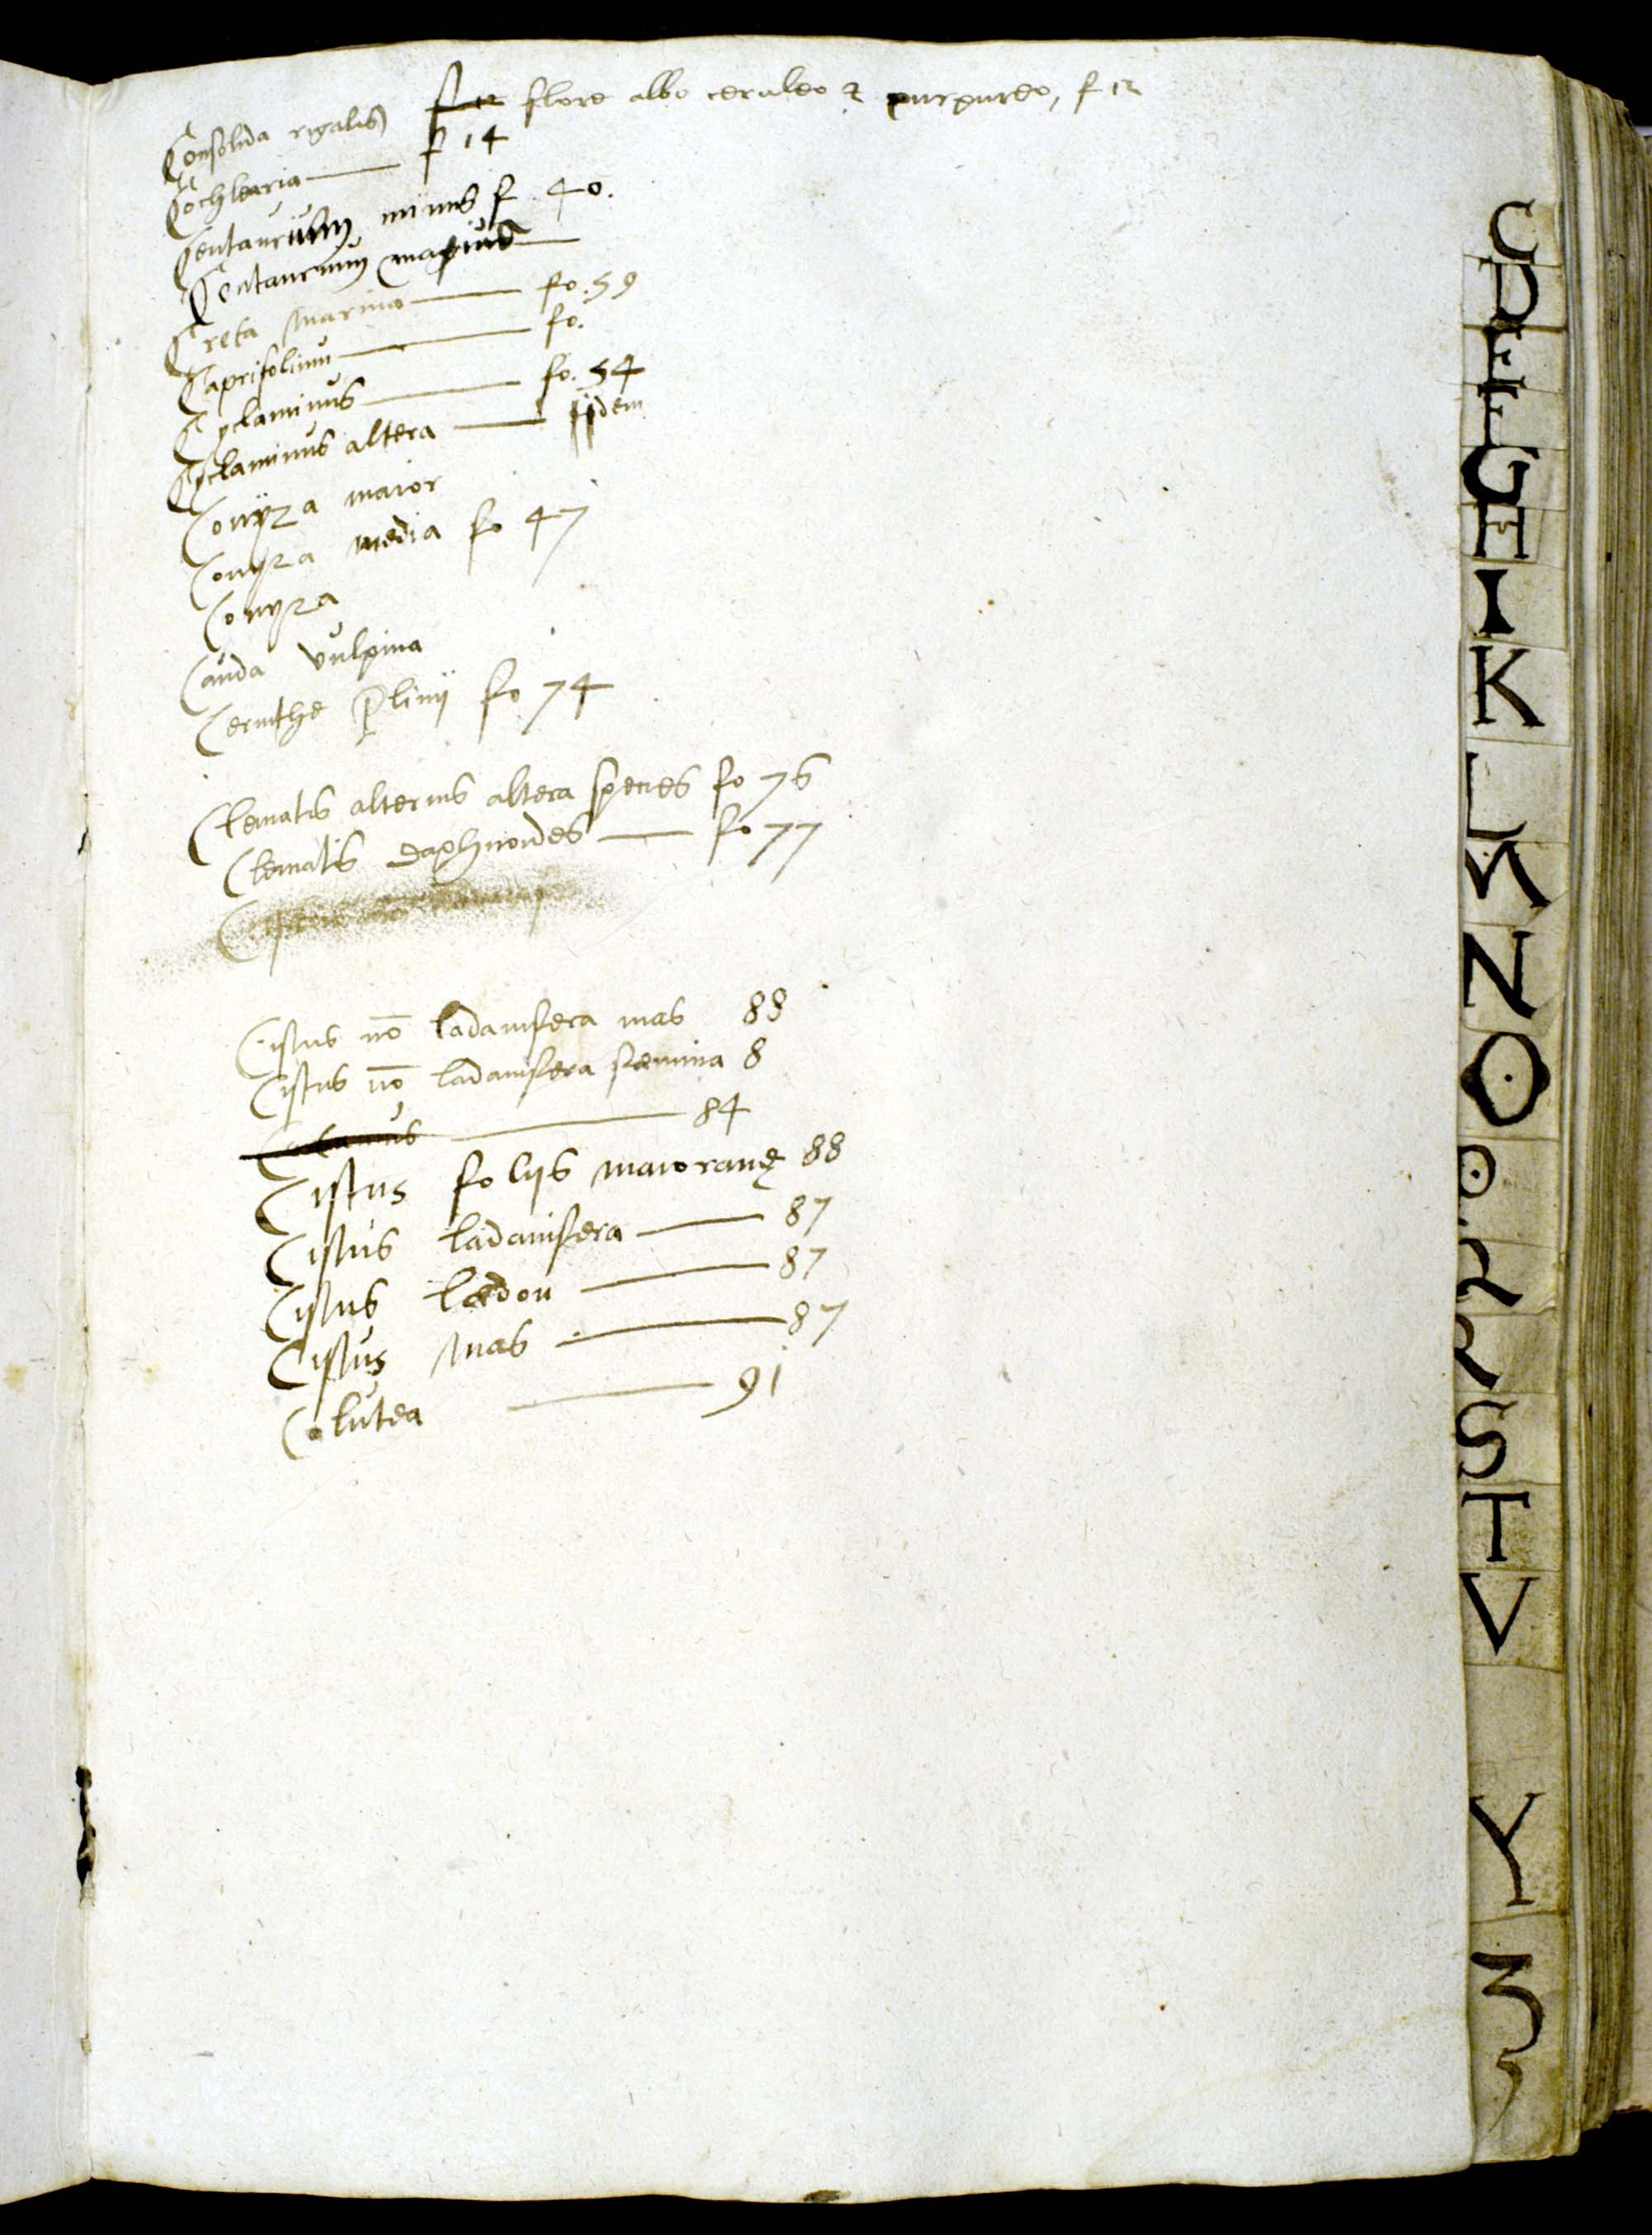 Consolida rigalis f 12 flore albo ceruleo & purpureo, f 12
Cochlearia f 14
Centaurium minus f. 40.
Centaurium magius
Creta marina fo. 59
Caprifolium fo.
Cyclaminus fo. 54
Cyclaminus altera ijdem
Conyza maior
Conyza media fo 47
Conyza
Cauda vulpina
Cerinthe Plinij fo 74
Clematis alterius altera species fo 76
Clematis daphnoides fo 77
Cistus nō ladanifera mas 88
Cistus nō ladanifera fæmina 8
84
Cistus folijs maioranę 88
Cistus ladanifera 87
Cistus ledon 87
Cistus mas 87
Colutea 91
C
D
E
F
G
H
I
K
L
M
N
O
P
Q
R
S
T
V
Y
Z